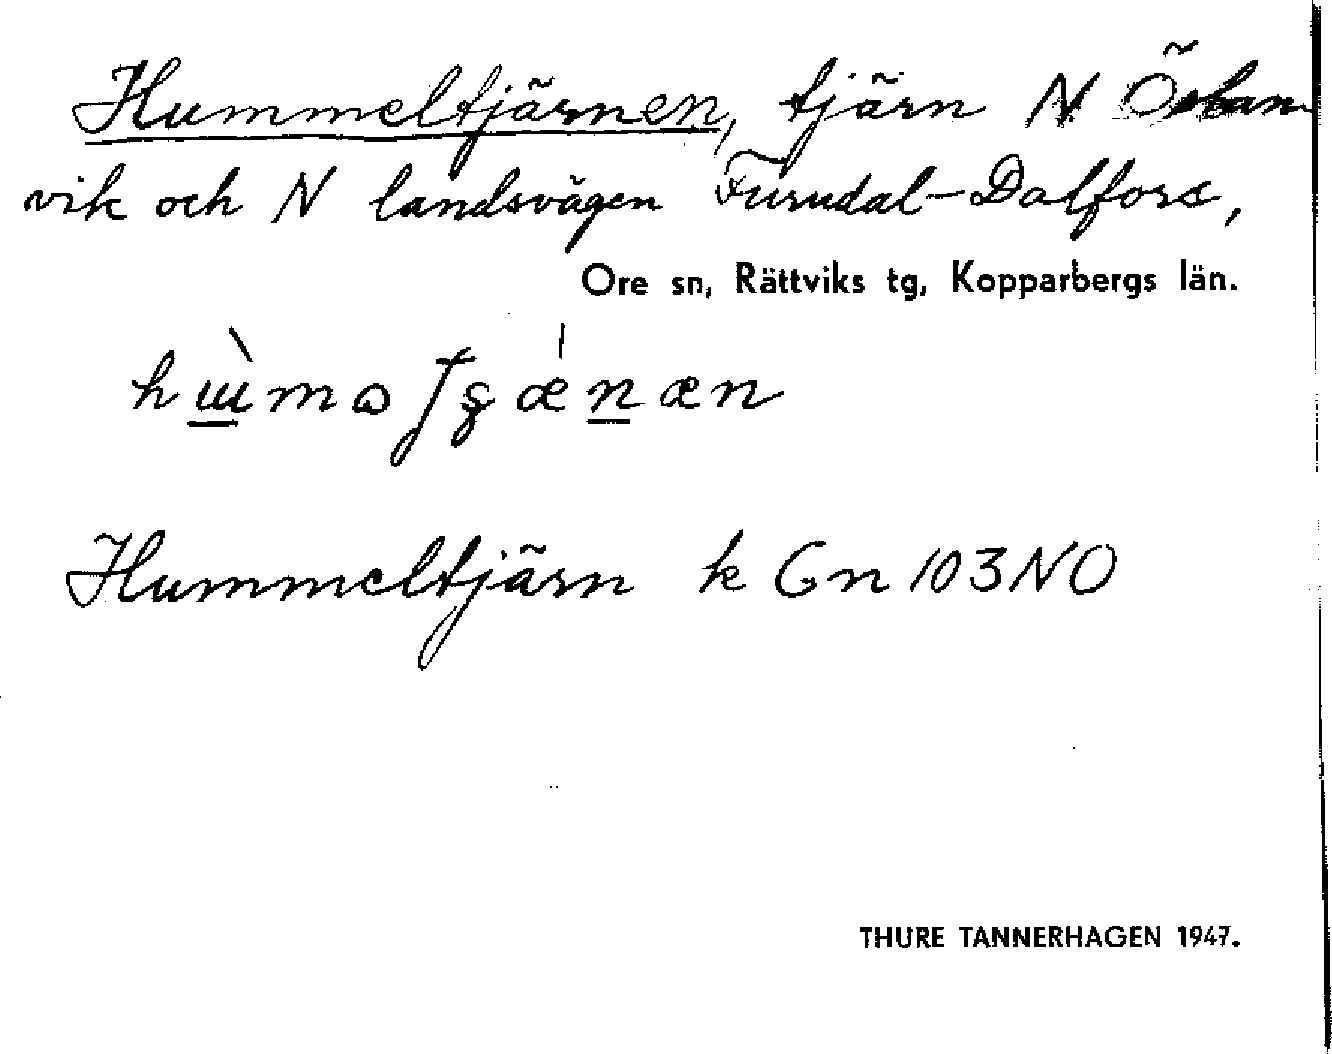 Hummeltjärnen, tjärn N Östan-
vik och N landsvägen Furudal-Dalfors,
Ore sn, Rättviks tg, Kopparbergs län.
Hummeltjärn k Gn 103 NO
THURE TANNERHAGEN 1947.